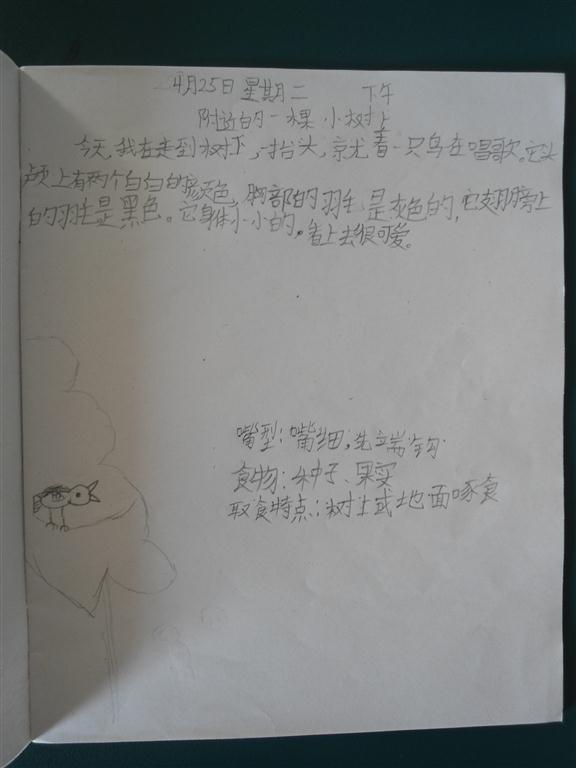 4月25日 星期二 下午
附近的一棵小树上
今天,我在走到树下,一抬头,就看一只鸟在唱歌。它头
上有两个白白的颜色,胸部的羽毛是灰色的,它翅膀上
的羽毛是黑色。它身体小小的。看上去很可爱。
嘴型:嘴细,先端钩
食物:种子、果实
取食特点:树上或地面啄食